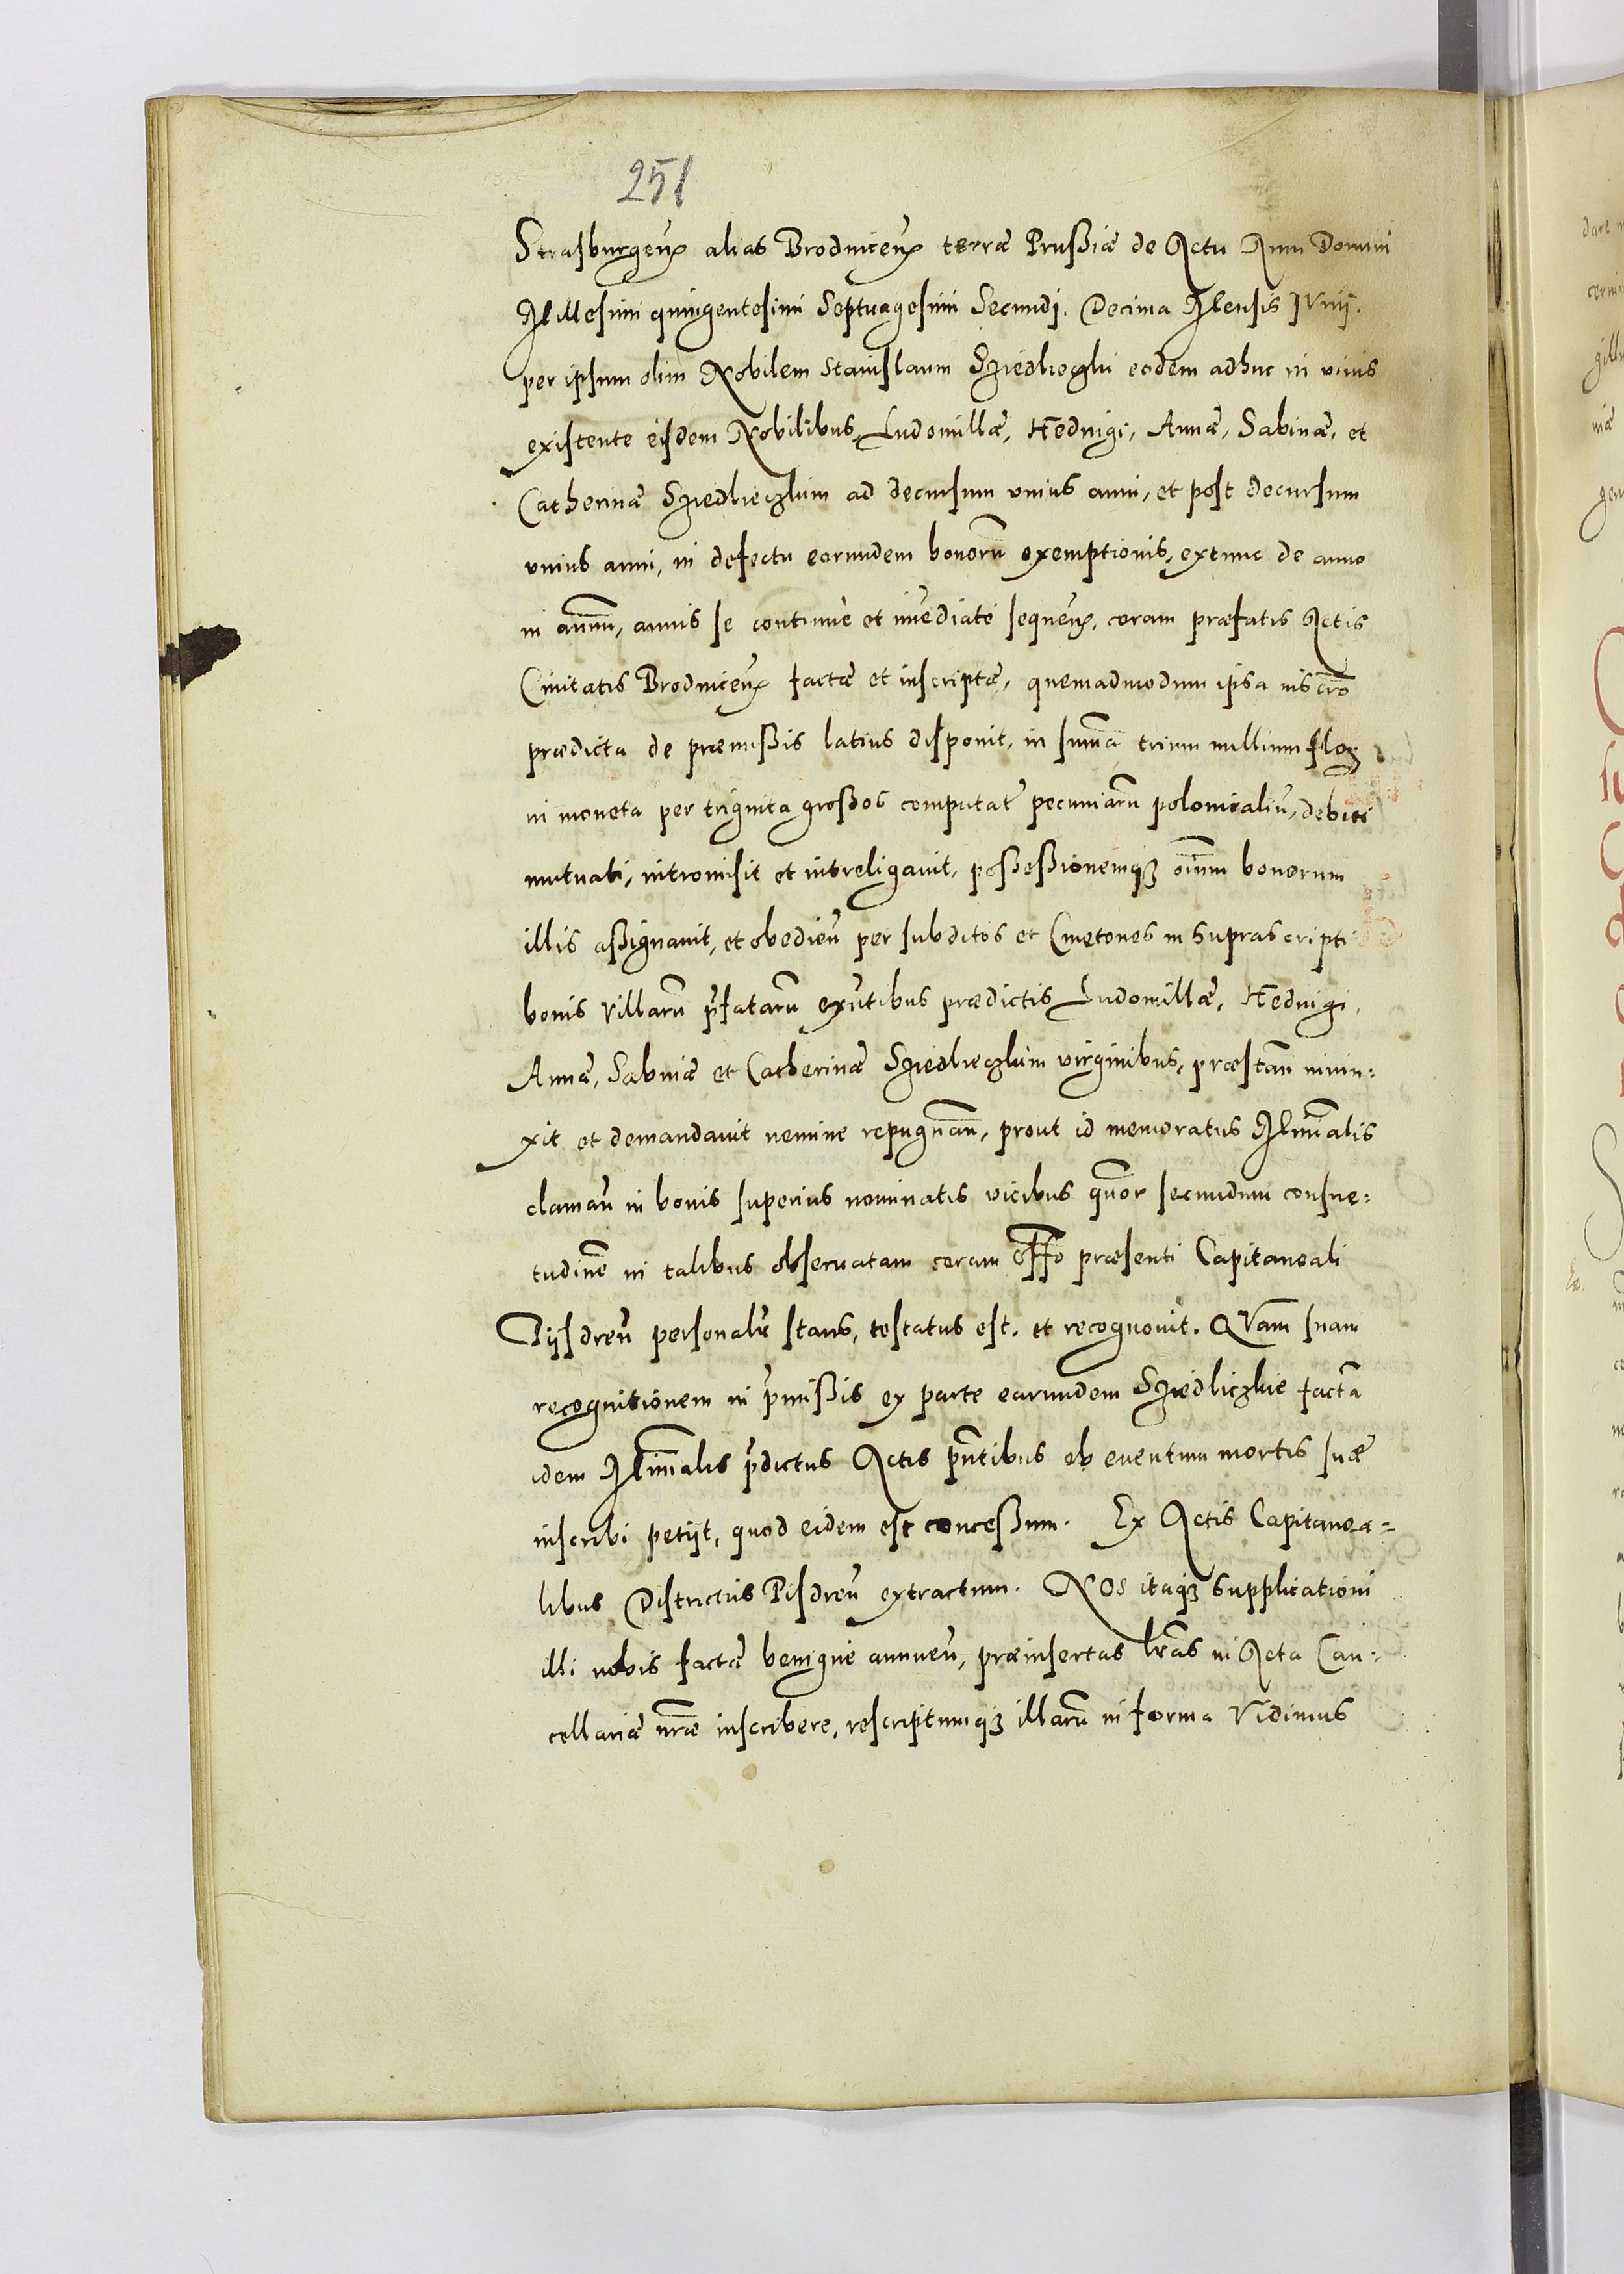 251
Strasburgeñ alias Brodniceñ terræ Prußiæ de Actu Anni Domini
Millesimi quingentesimi Septuagesimi Secundj. Decima Mensis Iunij.
per ipsum olim Nobilem Stanislaum Sziedlieczki eodem adhuc in viuis
existente eisdem Nobilibus, Ludomillæ, Heduigi, Annæ, Sabinæ, et
Catherinæ Sziedlieczkim ad decursum vnius anni, et post decursum
vnius anni, in defectu eorundem bonorũ exemptionis, extunc de anno
in annũ, annis se continuè et im̃ediatè sequeñ, coram præfatis Actis
Ciuitatis Brodniceñ factæ et inscriptæ, quemadmodum ipsa inscr̃o
prædicta de præmißis latius disponit, in sum̃a trium millium floꝝ
in moneta per triginta großos computat̃ pecuniarũ polonicaliũ, debiti
mutuati, intromisit et intreligauit, poßeßionemqꝫ om̃ium bonorum
illis aßignauit, et obedieñ per subditos et Cmetones in suprascripti
bonis Villarũ p̃fatarũ ex̃ntibus prædictis Ludomillæ, Heduigi,
Annæ, Sabinæ et Catherinæ Sziedlieczkim virginibus, præstañ iniun:
xit et demandauit nemine repugnañ, prout id memoratus Ministerialis
clamañ in bonis superius nominatis vicibus quor̃ secundum consue:
tudinẽ in talibus obseruatam coram Off̃o præsenti Capitaneali
Pijsdreñ personalr̃ stans, testatus est. et recognouit. QVam suam
recognitionem in p̃mißis ex parte earundem Sziedliczkie factã
idem Minr̃alis p̃dictus Actis p̃ntibus ob euentum mortis suæ
inscribi petijt, quod eidem est conceßum. Ex Actis Capitanea=
libus Districtus Pisdreñ extractum. NOS itaqꝫ supplicationi
illi nobis factæ benignè annueñ, præinsertas lr̃as in Acta Can:
cellariæ nr̃æ inscribere, rescriptumqꝫ illarũ in forma Vidimus